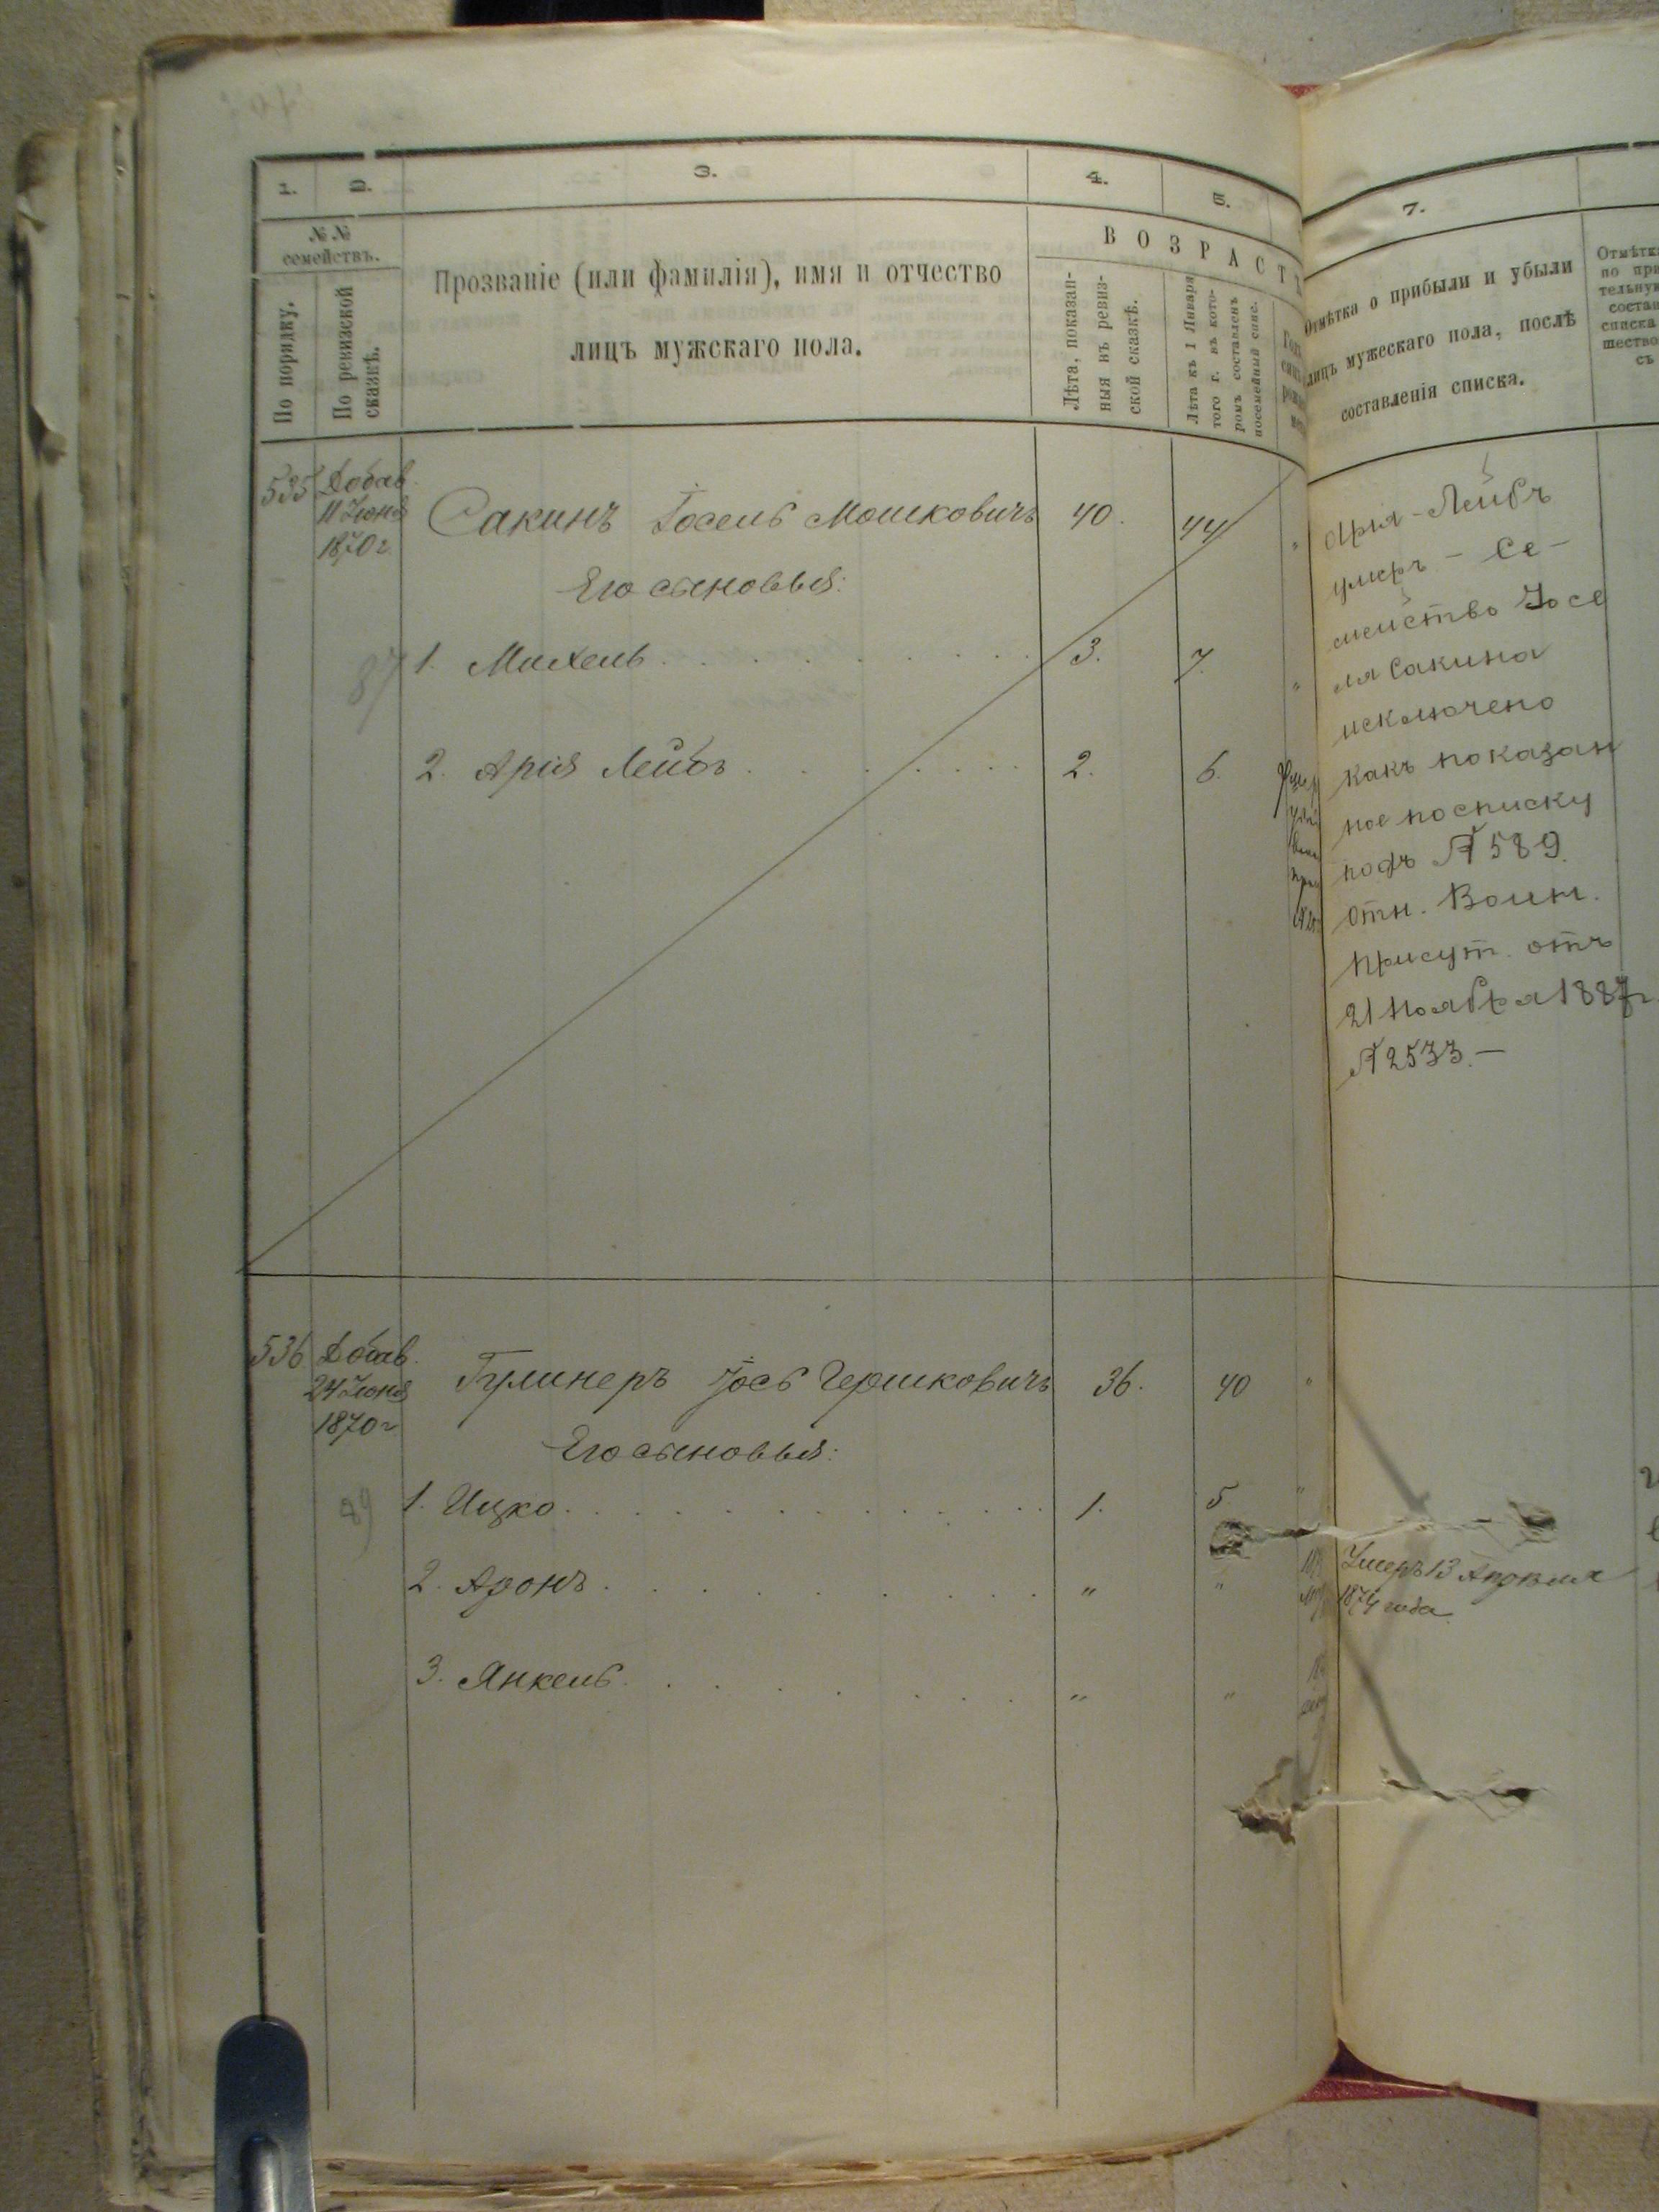 1. 2. 3. 4. 5. 7.
№№ семействъ.
По порядку.
По ревизской сказкѣ.
Прозваніе (или фамилія), имя и отчество
лицъ мужскаго пола.
ВОЗРАСТЪ
Лѣта, показан-
ныя въ ревиз-
ской сказкѣ.
Лѣта къ 1 Января
того г. въ кото-
ромъ составленъ
посемейный спис.
Отмѣтка о прибыли и убыли
лицъ мужескаго пола, послѣ
составленія списка.
535 Добав. 11 Іюня 1870 г.
Сакинъ Іосель Мошковичъ 40. 44
Его сыновья:
87
1. Михель 3. 7.
2. Арія Лейбъ 2. 6.
Арія-Лейбъ
умеръ - Се-
мейство Іосе
ля Сакина
исключено
какъ показан
ное по списку
подъ № 589.
отн. Воин.
Присут. отъ
21 Ноября 1887 г
№ 2533. —
536 Добав. 24 Іюня 1870 г
Гулинеръ Іось Гершковичъ 36. 40 "
Его сыновья:
89
1. Ицко 1. 5. "
2. Аронъ " "
Умеръ 13 Апрѣля
1874 года
3. Янкель " "